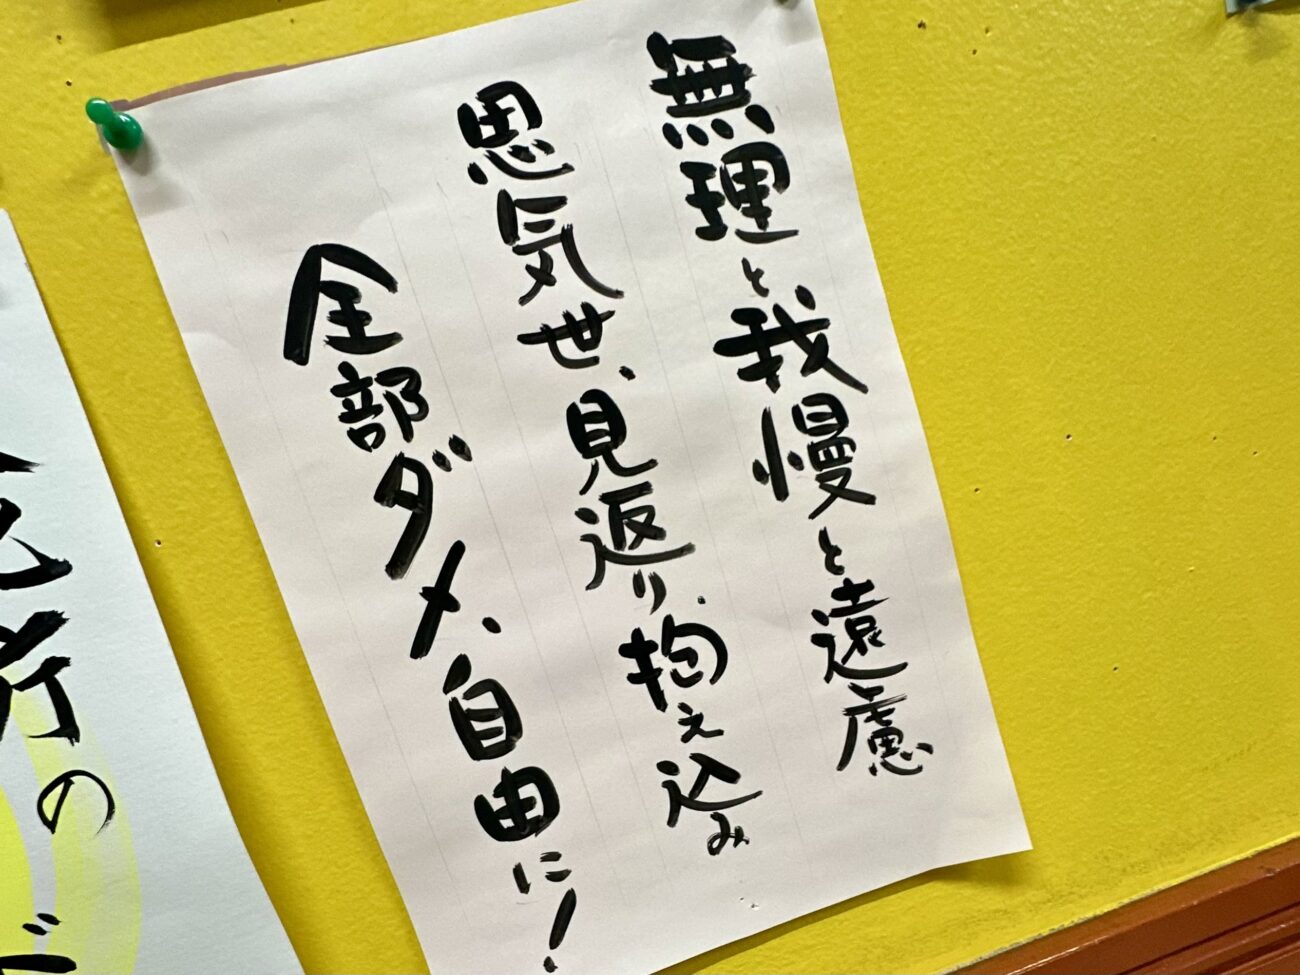 無理と我慢と遠慮
思気世、見返り、抱え込み
全部ダメ、自由に!
の